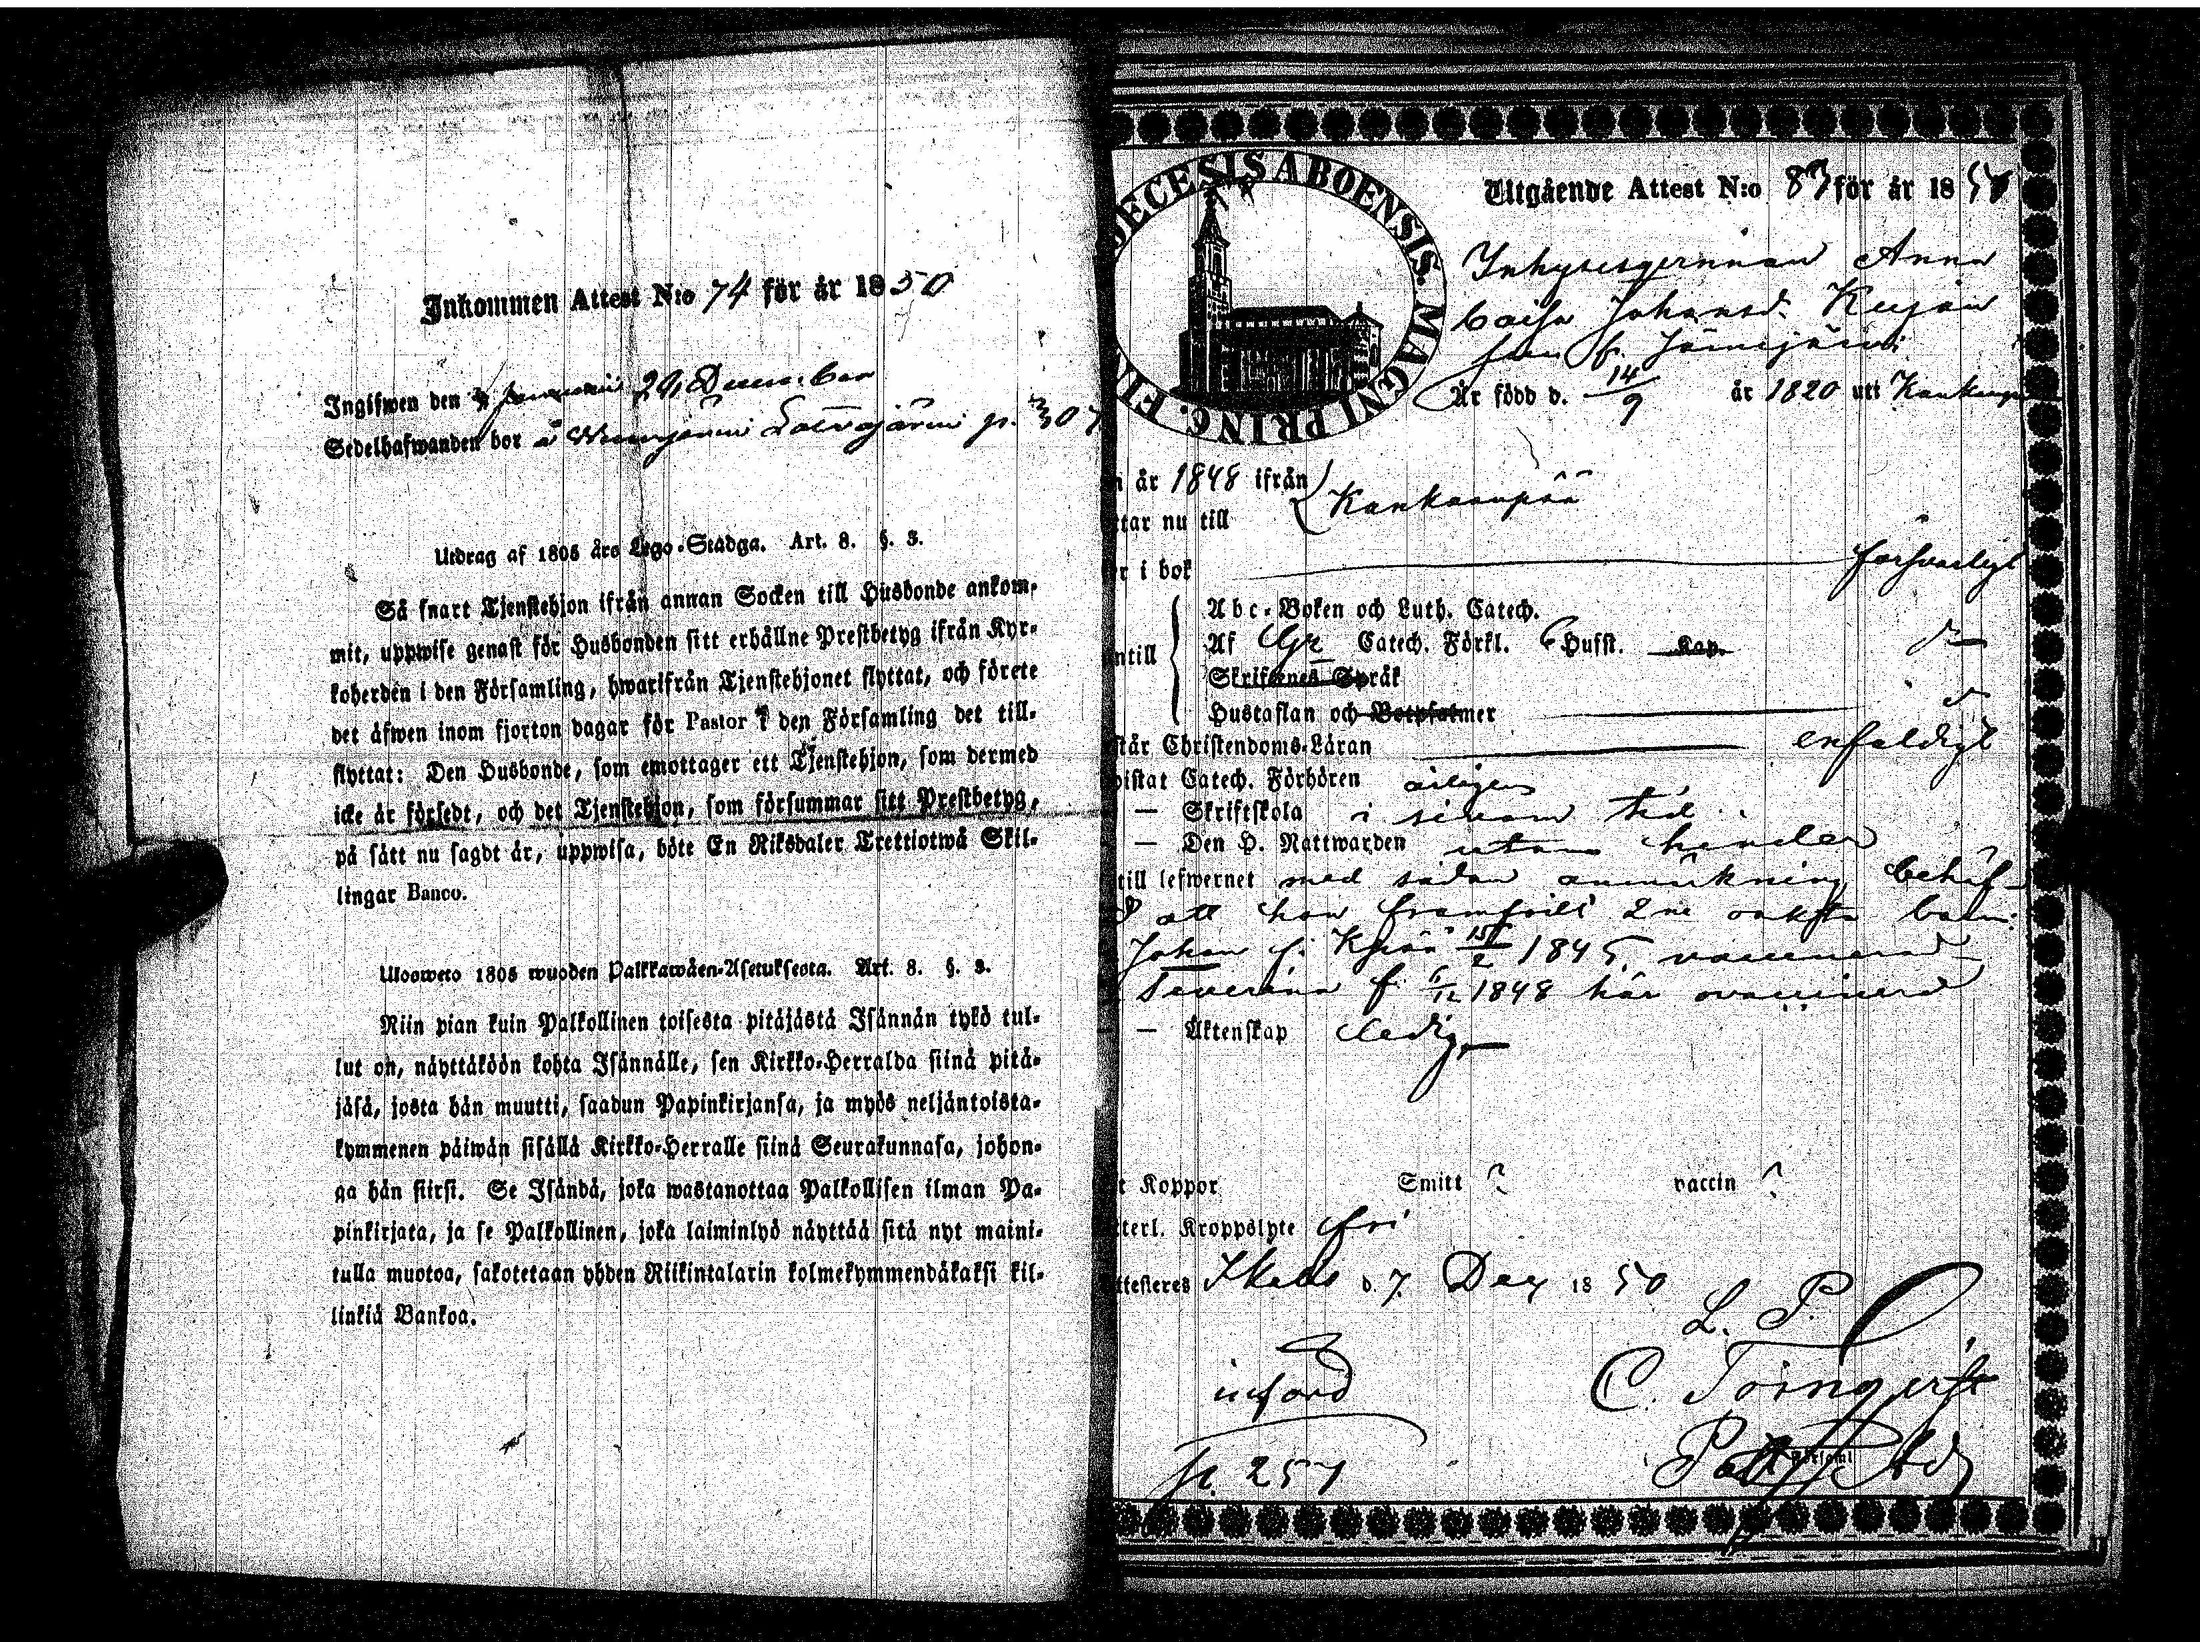 Inkommen Attest N:o 74 för år 1850
Ingifwen den 29 December
Sedelhafwanden bor å
Utdrag af 1805 års Lego-Stadga. Art. 8. §. 3.
Så snart Tjenstehjon ifrån annan Socken till Husbonde ankom-
mit, uppwise genast för Husbonden sitt erhållne Prestbetyg ifrån Kyr-
koherden i den Församling, hwarifrån Tjenstehjonet flyttat, och förete
det äfwen inom fjorton dagar för Pastor i den Församling det till-
flyttat: Den Husbonde, som emottager ett Tjenstehjon, som dermed
icke är försedt, och det Tjenstehjon, som försummar sitt Prestbetyg,
på sätt nu sagdt är, uppwisa, böte En Riksdaler Trettiotwå Skil-
lingar Banco.
Ulosweto 1805 wuoden Palkkawäen-Asetuksesta. Art. 8. §. 3.
Niin pian kuin Palkollinen toisesta pitäjästä Isännän tykö tul-
lut on, näyttäköön kohta Isännälle, sen Kirkko-Herralda siinä pitä-
jäsä, josta hän muutti, saadun Papinkirjansa, ja myös neljäntoista-
kymmenen päiwän sisällä Kirkko-Herralle siinä Seurakunnasa, johon-
ga hän siirsi. Se Isändä, joka wastanottaa Palkollisen ilman Pa-
pinkirjata, ja se Palkollinen, joka laiminlyö näyttää sitä nyt maini-
tulla muotoa, sakotetaan yhden Riikintalarin kolmekymmendäkaksi kil-
linkiä Bankoa.
DECESIS ABOENSIS. MAGNI PRINC. FIN
Utgående Attest N:o 83 för år 1850
Inhysesqvinnan Anna
Caisa Johansd. Kujan
Är född d. 14/9 år 1820 uti Kankaanp
år 1848 ifrån
tar nu till Kankaanpää
r i bok försvarligt
Abc-Boken och Luth. Catech.
ntill Af Catech. Förkl. Hufst. Kap. d:o
Skriftenes Språk
Hustaflan och Botpsalmer
står Christendoms-Läran enfaldigt
istat Catech. Förhören årligen
— Skriftskola i sinom tid
— Den H. Nattwarden utan hinder
till lefwernet med sådan anmärkning behäf-
att hon framfödt 2ne oäkta barn:
Johan f. 15/2 1845 vaccinerad
Severina f. 6/12 1848 här ovaccinerad
— — Äktenskap ledig
t Koppor Smitt ? vaccin ?
terl. Kroppslyte fri
ttesteres d. 7 Dec 1850
L. P.
C. Törnqvist
införd
p. 257